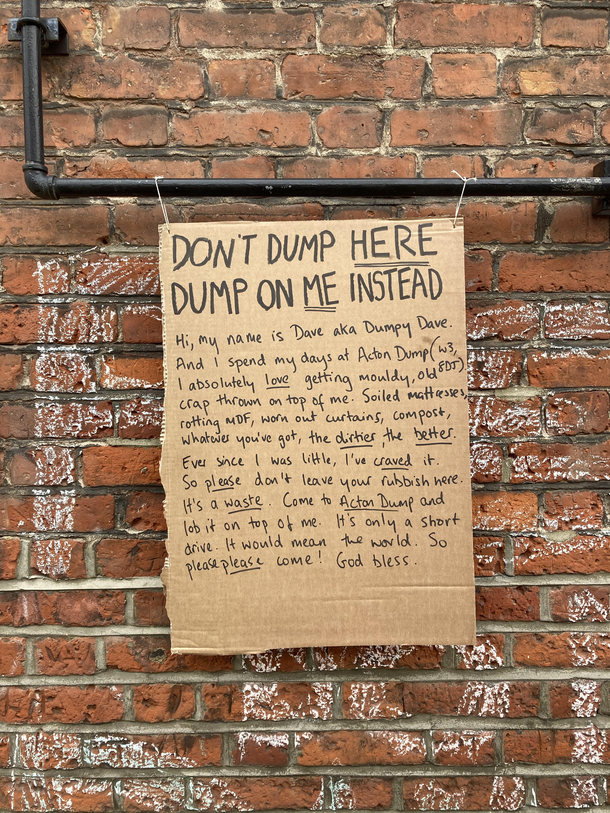 DON'T DUMP HERE
DUMP ON ME INSTEAD
Hi, my name is Dave aka Dumpy Dave.
And I spend my days at Acton Dump (W3,
8DJ)
I absolutely love getting mouldy, old
crap thrown on top of me. Soiled mattresses,
rotting MDF, worn out curtains, compost,
whatever you've got, the dirtier the better.
Ever since I was little, I've craved it.
So please don't leave your rubbish here.
It's a waste. Come to Acton Dump and
lob it on top of me. It's only a short
drive. It would mean the world. So
please please come! God bless.